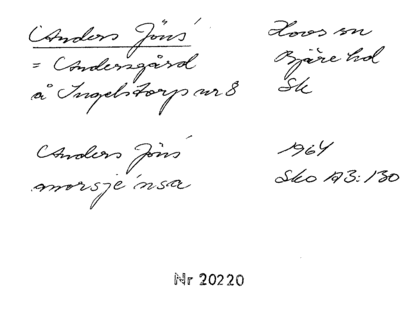 Anders Jöns´ Hovs sn
= Andersgård Bjäre hd
å Ingelstorp nr 8 Sk
Anders Jöns´ 1964
Sko A3:130
Nr 20220